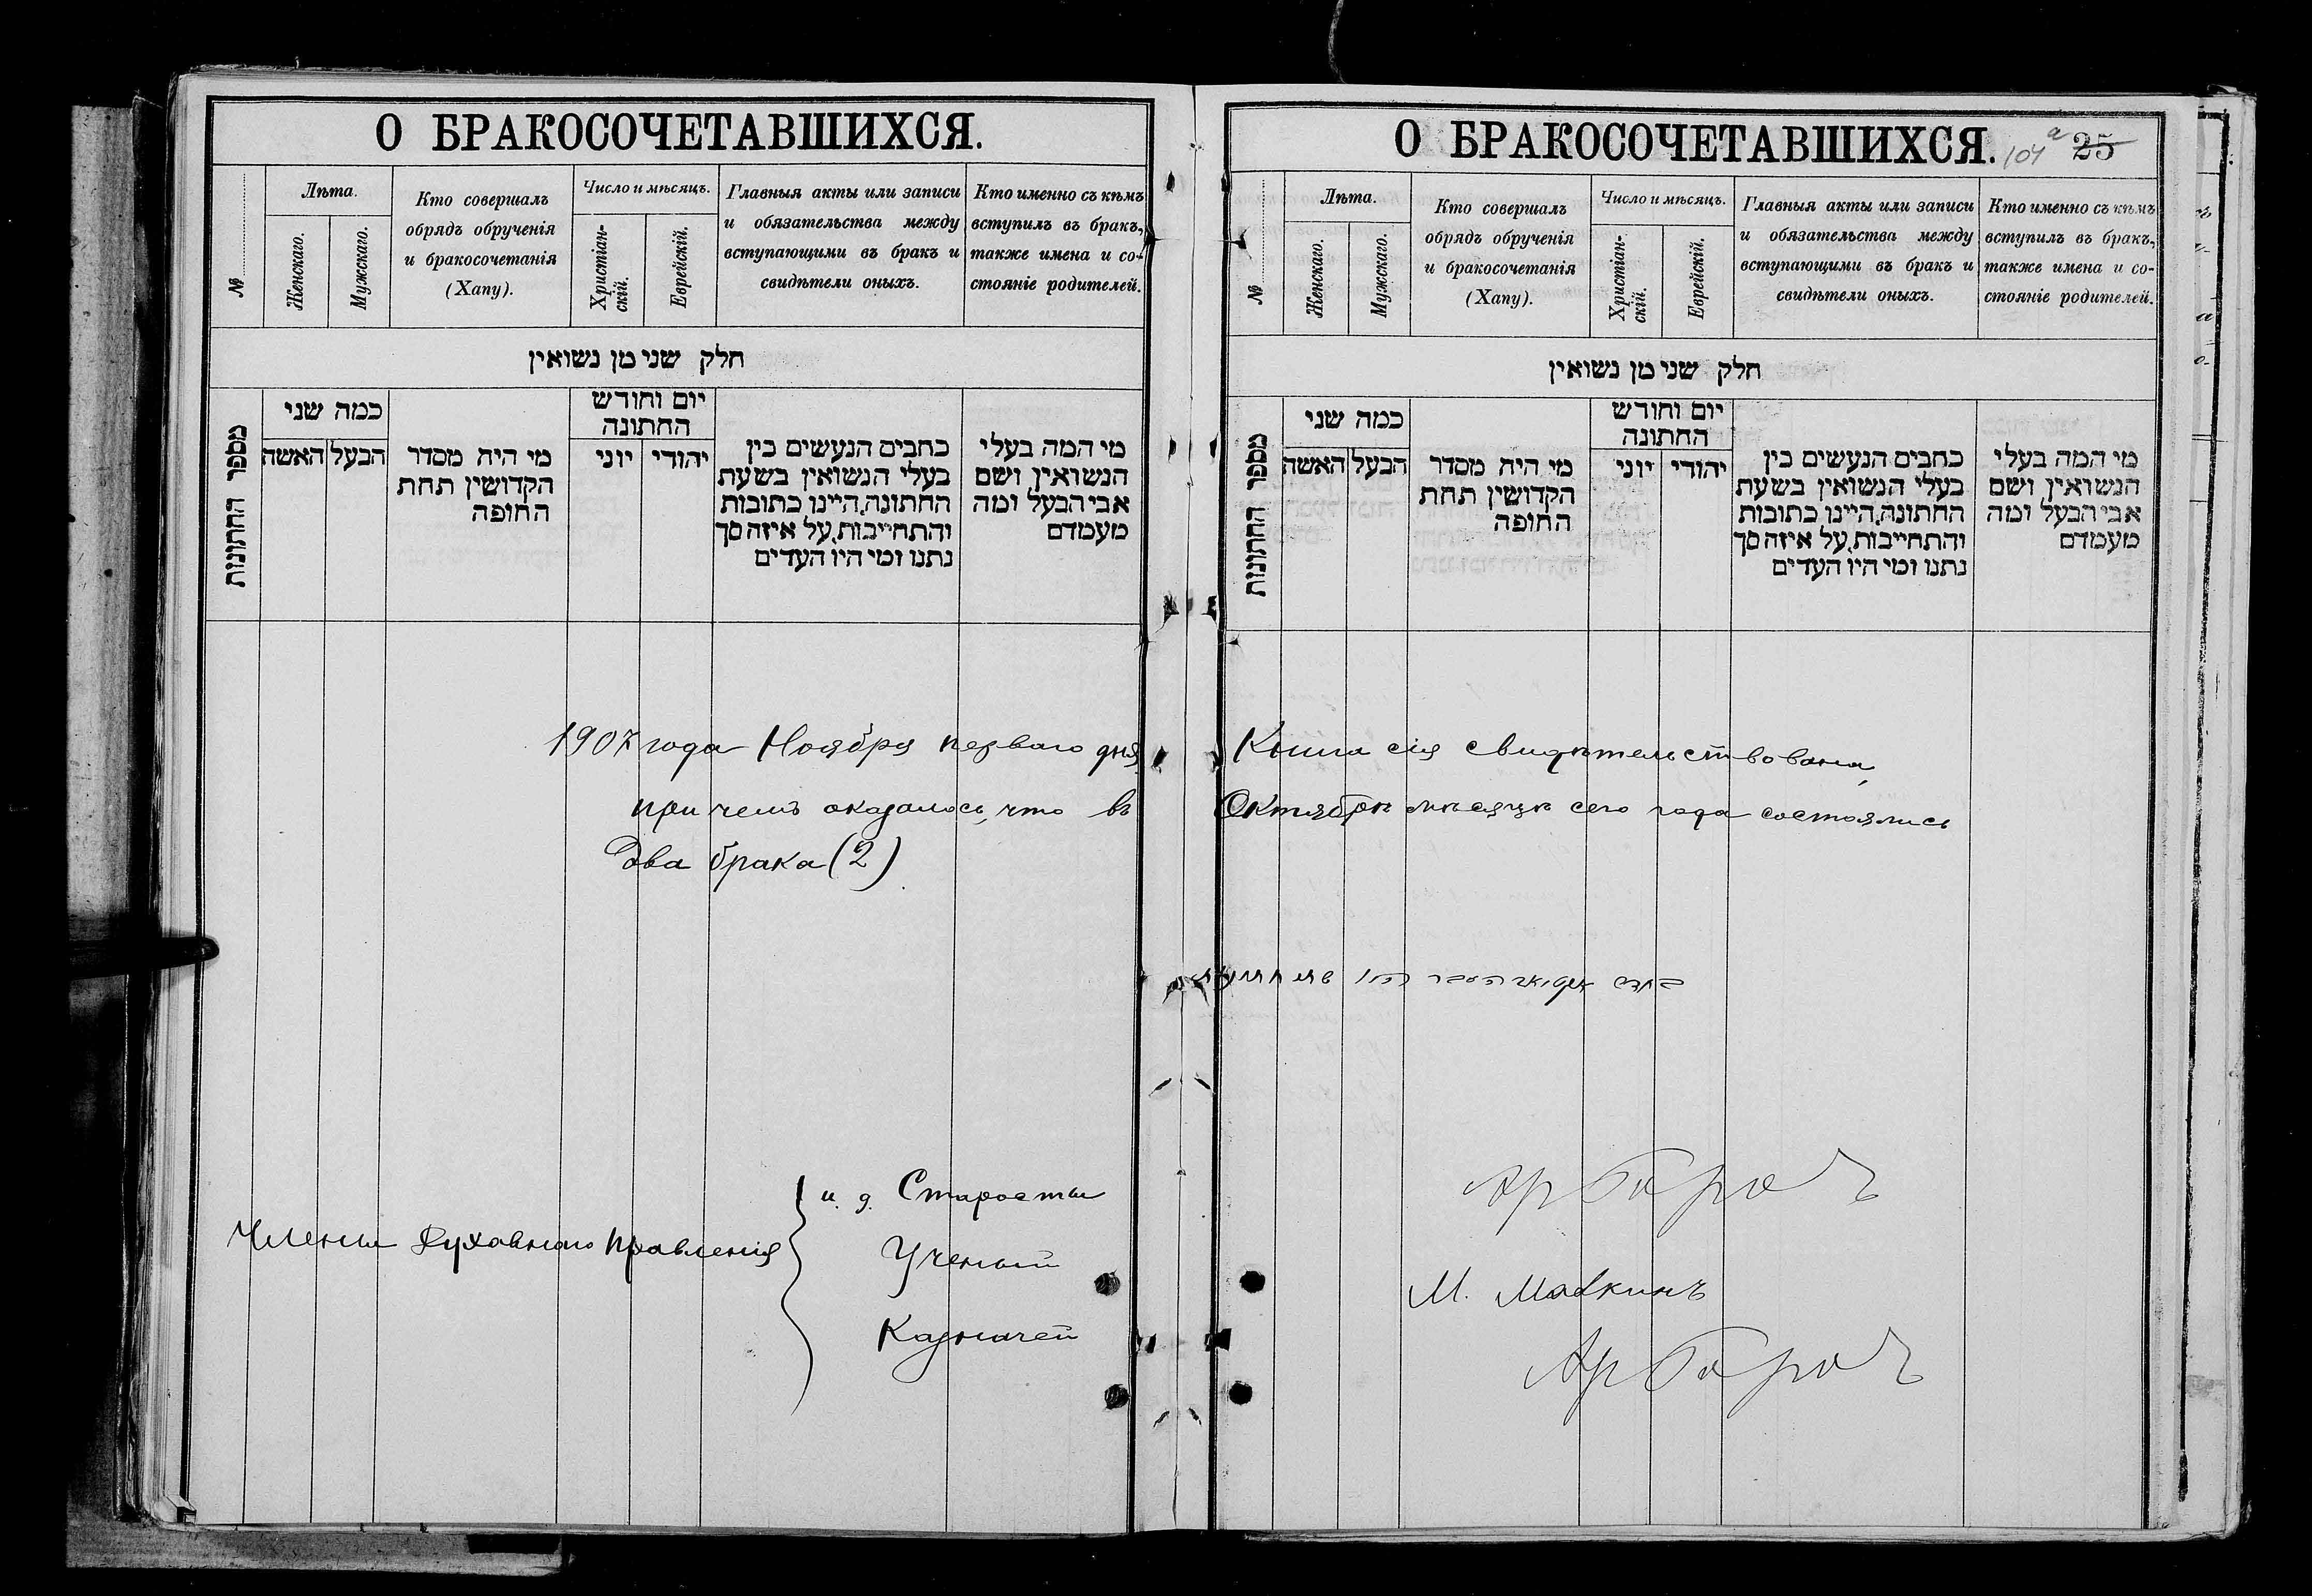 О БРАКОСОЧЕТАВШИХСЯ.
№
Лѣта.
Женскаго.
Мужскаго.
Кто совершалъ
обрядъ обрученія
и бракосочетанія
(Хапу).
Число и мѣсяцъ.
Христіан-
скій.
Еврейскій.
Главныя акты или записи
и обязательства между
вступающими въ бракъ и
свидѣтели оныхъ.
Кто именно съ кѣмъ
вступилъ въ бракъ,
также имена и со-
стояніе родителей.
חלק שני מן נשואין
מספר החתונות
כמה שני
האשה
הבעל
מי היה מסדר
הקדושין תחת
החופה
יום וחודש
החתונה
יוני
יהודי
כחבים הנעשים בין
בעלי הנשואין בשעת
החתונה, היינו כתובות
והתחייבות, על איזה סך
נתנו ומי היו העדים
מי המה בעלי
הנשואין, ושם
אבי הבעל ומה
מעמדם
О БРАКОСОЧЕТАВШИХСЯ.
104 а 25
№
Лѣта.
Женскаго.
Мужскаго.
Кто совершалъ
обрядъ обрученія
и бракосочетанія
(Хапу).
Число и мѣсяцъ.
Христіан-
скій.
Еврейскій.
Главныя акты или записи
и обязательства между
вступающими въ бракъ и
свидѣтели оныхъ.
Кто именно съ кѣмъ
вступилъ въ бракъ,
также имена и со-
стояніе родителей.
חלק שני מן נשואין
מספר החתונות
כמה שני
האשה
הבעל
מי היה מסדר
הקדושין תחת
החופה
יום וחודש
החתונה
יוני
יהודי
כחבים הנעשים בין
בעלי הנשואין בשעת
החתונה, היינו כתובות
והתחייבות, על איזה סך
נתנו ומי היו העדים
מי המה בעלי
הנשואין, ושם
אבי הבעל ומה
מעמדם
1907 года Ноября перваго дня Книга сія свидѣтельствована,
при чемъ оказалось, что въ Октябрѣ мѣсяцѣ сего года состоялись
Два брака (2)
Члены Духовнаго Правленія
и. д. Старосты
Ученый М.
Казначей